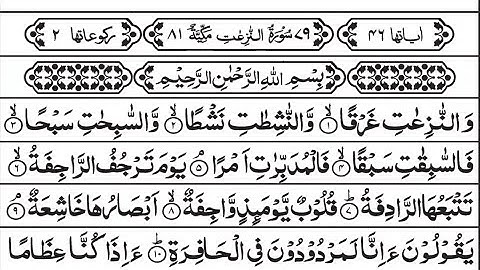 اٰیاتها ۴۶ ۷۹ سُوْرَةُ النّٰزِعٰتِ مَكِّیَّةٌ ۸۱ رکوعاتها ۲
بِسْمِ اللّٰهِ الرَّحْمٰنِ الرَّحِیْمِ
وَالنّٰزِعٰتِ غَرْقًاۙ۱ وَّالنّٰشِطٰتِ نَشْطًاۙ۲ وَّالسّٰبِحٰتِ سَبْحًاۙ۳
فَالسّٰبِقٰتِ سَبْقًاۙ۴ فَالْمُدَبِّرٰتِ اَمْرًاۘ۵ یَوْمَ تَرْجُفُ الرَّاجِفَةُۙ۶
تَتْبَعُهَا الرَّادِفَةُؕ۷ قُلُوْبٌ یَّوْمَىِٕذٍ وَّاجِفَةٌۙ۸ اَبْصَارُهَا خَاشِعَةٌۘ۹
یَقُوْلُوْنَ ءَاِنَّا لَمَرْدُوْدُوْنَ فِی الْحَافِرَةِؕ۱۰ ءَاِذَا كُنَّا عِظَامًا